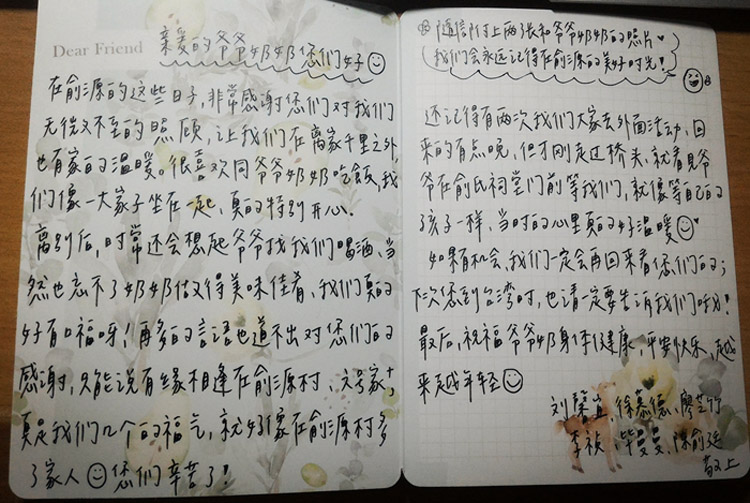 Dear Friend
亲爱的爷爷奶奶您们好
在俞源的这些日子,非常感谢您们对我们
无微不至的照顾,让我们在离家千里之外,
也有家的温暖。很喜欢同爷爷奶奶吃飯,我
们像一大家子坐在一起,真的特别开心.
离别后,时常还会想起爷爷找我们喝酒、当
然也忘不了奶奶做得美味佳肴,我们真的
好有口福呀!再多的言语也道不出对您们的
感谢,只能说有缘相逢在俞源村、六号家,
真是我们几个的福气,就好像在俞源村多
了家人 您们辛苦了!
随信附上两张和爷爷奶奶的照片
我们会永远记得在俞源的美好时光!
还记得有两次我们大家去外面活动,回
来的有点晚,但才刚走过桥头,就看见爷
爷在俞氏祠堂门前等我们,就像等自己的
孩子一样,当时的心里真的好温暖
如果有机会,我们一定会再回来看您们的;
下次您到台湾时,也请一定要告诉我们哦!
最后,祝福爷爷奶身体健康,平安快乐,越
来越年轻
刘馨宜、徐慕德、廖芷竹
李祯、毕曼曼、陈俞廷
敬上